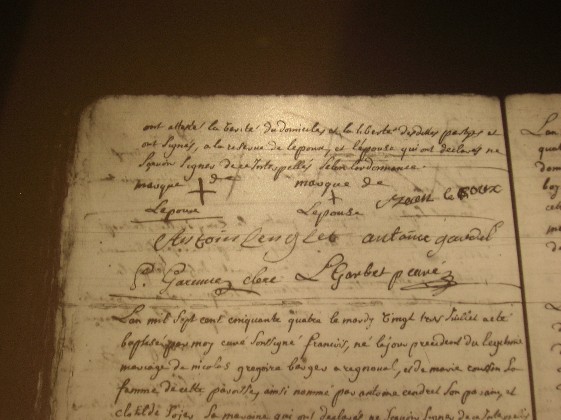 ont attesté la verité du domicile et la liberté desdittes partyes et
ont signés, a la reserve de lepoux, et lepouse qui ont declarés ne
scavoir signer de ce interpellés selon lordonnance.
marque de marque de
Lepoux Lepouse Jean le Roux
Antoin lenglet antoine
P. Garenne clerc L Garbet curé
Lan mil sept cent cinquante quatre le mardy vingt trois juillet a eté
baptisé par moy curé soussigné francois, né le jour precedent du legitime
mariage de nicolas gregoire berger a regnauval, et de marie
femme de cette paroisse, ainsi nommé par antoine cendret son parain, et
clotilde sa maraine qui ont declaré ne scavoir signer